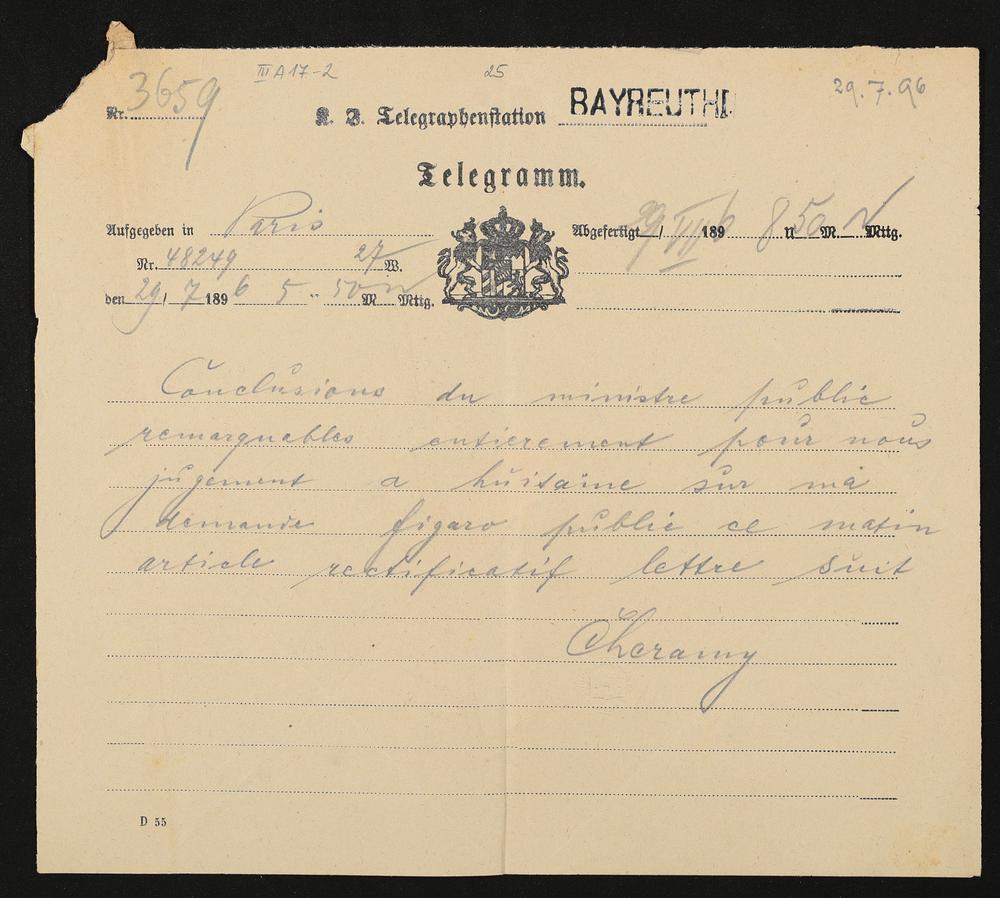 III A 17-2 25 29.7.96
Nr. 3659
K. B. Telegraphenstation BAYREUTH
Telegramm.
Aufgegeben in Paris
Abgefertigt 29/VII 1896 8 U 50 M. N Mttg.
Nr. 48249 27 W.
den 29/7 1896 5 .. 50 M n Mttg.
Conclusions du ministre public
remarquables entierement pour nous
jugement a huitaine sur ma
demande figaro public ce matin
article rectificatif lettre suit
Cheramy
D 55